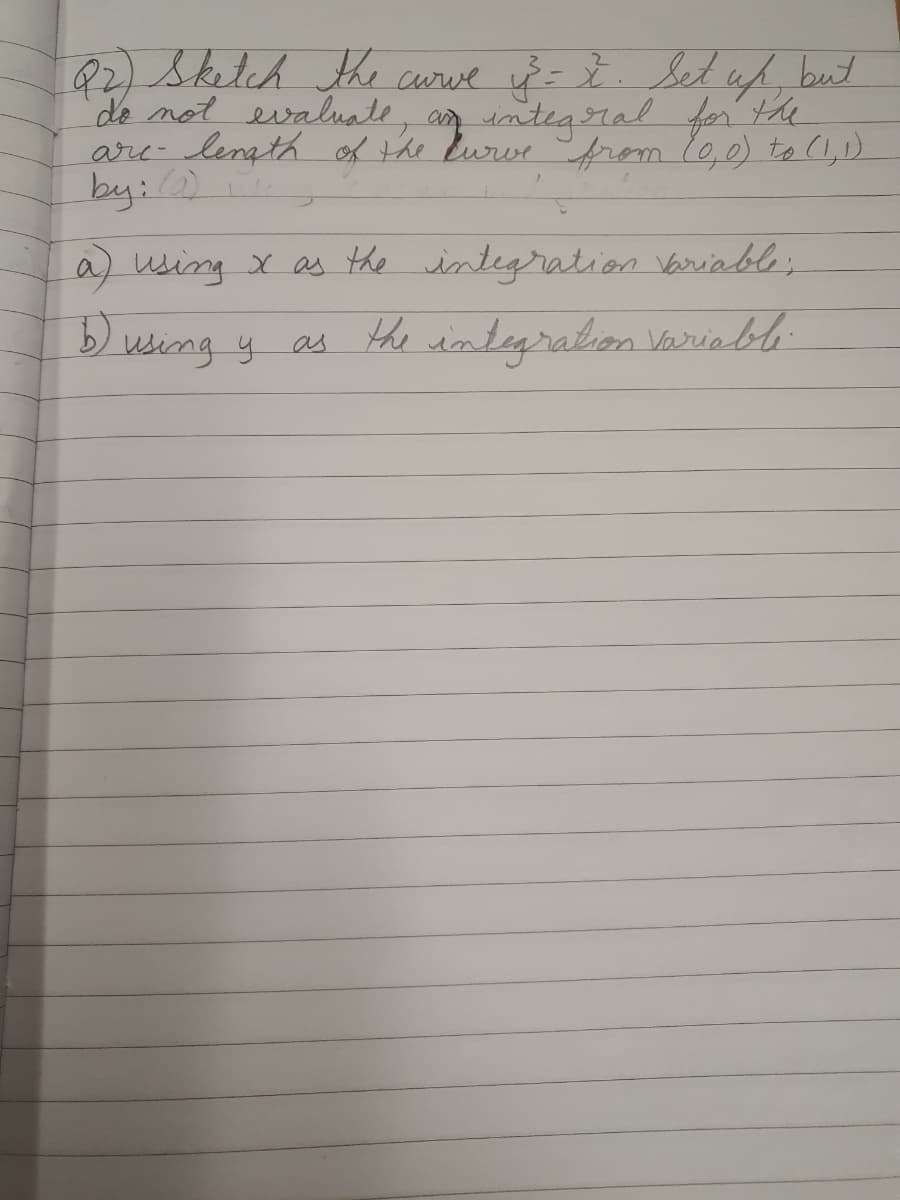 Q2) Sketch the curve y³ = x². Set up, but
do not evaluate, an integral for the
arc-length of the curve from (0,0) to (1,1)
by: (a)
a) using x as the integration variable;
b) using y as the integration variable.